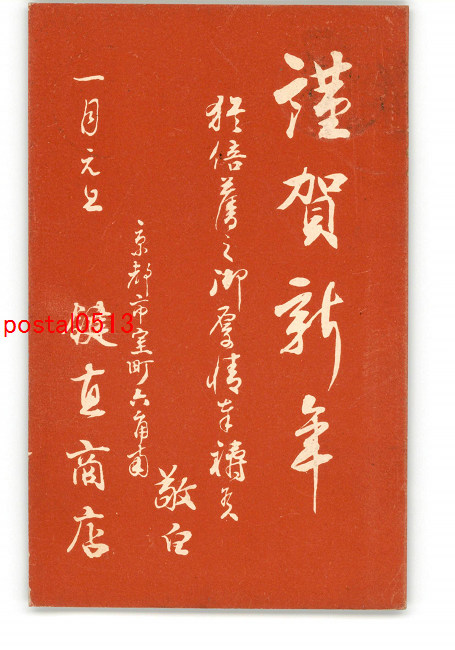 謹賀新年
猶倍舊之御厚情奉祷候
敬白
一月元旦
京都市室町六角南
直商店
postal0513